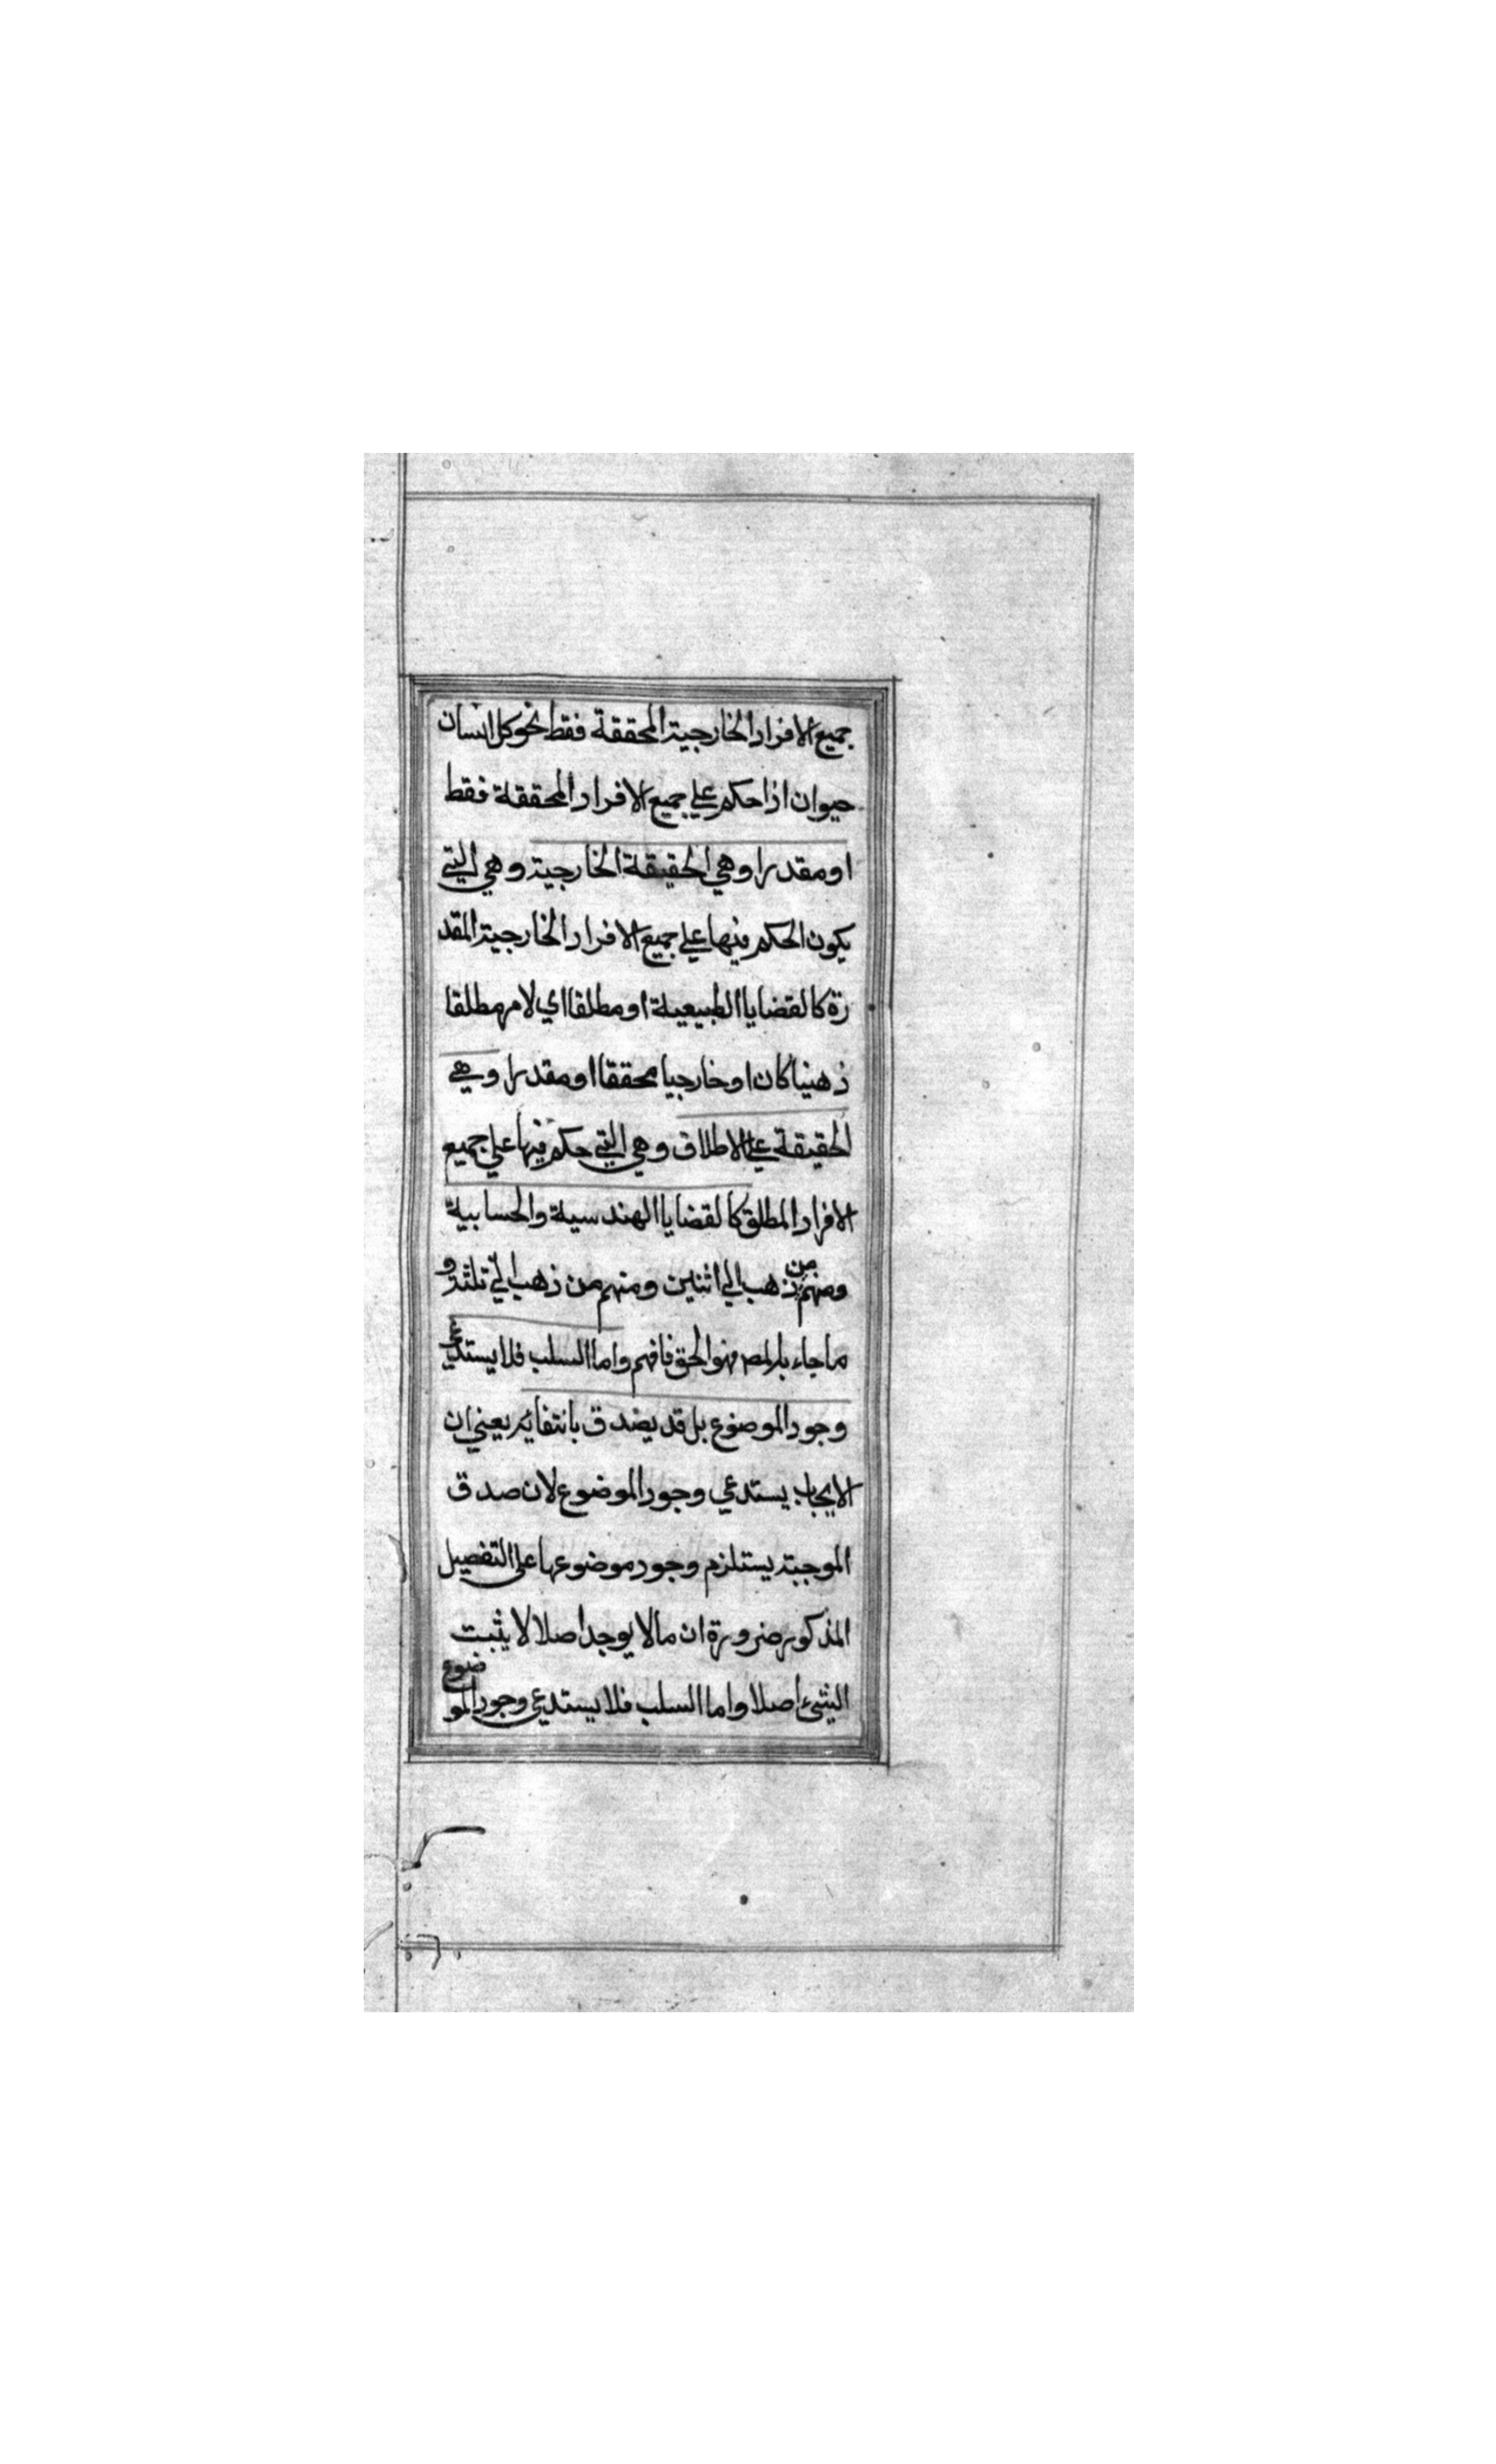 جميع الافراد الخارجية المحققة فقط نحو كل انسان
حيوان اذا حكم علي جميع الافراد المحققة فقط
او مقدرا وهي الحقيقة الخارجية وهي التي
يكون الحكم فيها علي جميع الافراد الخارجية المقد
رة كالقضايا الطبيعية او مطلقا اي لامر مطلقا
ذهنيا كان او خارجيا محققا او مقدرا وهي
الحقيقة علي الاطلاق وهي التي حكم فيها علي جميع
الافراد المطلق كالقضايا الهندسية والحسابية
ومنهم من ذهب الي اثنين ومنهم من ذهب الي ثلثة و
ما جاء فهو الحق فافهم واما السلب فلا يستدعي
وجود الموضوع بل قد يصدق بانتفائه يعني ان
الايجاب يستدعي وجود الموضوع لان صدق
الموجبة يستلزم وجود موضوعها علي التفصيل
المذكور ضرورة ان مالا يوجد اصلا لا يثبت
الشئ اصلا واما السلب فلا يستدعي وجود الموضوع